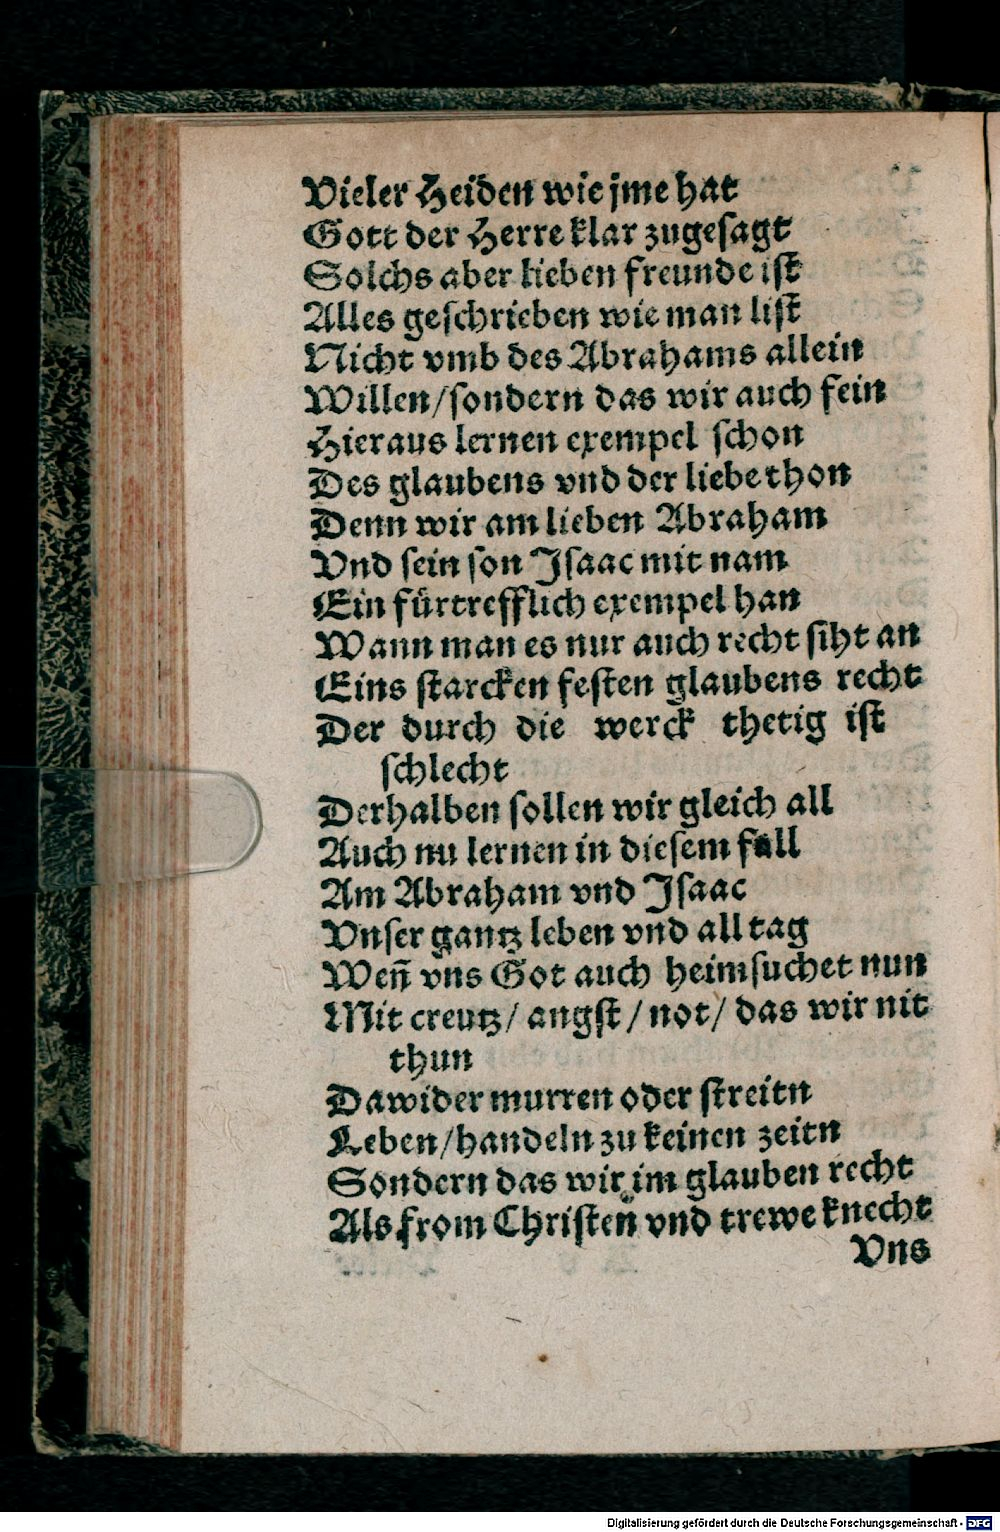 Vieler Heiden wie jme hat
Gott der Herre klar zugesagt
Solchs aber lieben freunde ist
Alles geschrieben wie man list
Nicht vmb des Abrahams allein
Willen/sondern das wir auch fein
Hieraus lernen exempel schon
Des glaubens vnd der liebe thon
Denn wir am lieben Abraham
Vnd sein son Isaac mit nam
Ein fürtrefflich exempel han
Wann man es nur auch recht siht an
Eins starcken festen glaubens recht
Der durch die werck thetig ist
schlecht
Derhalben sollen wir gleich all
Auch nu lernen in diesem fall
Am Abraham vnd Isaac
Vnser gantz leben vnd all tag
Weñ vns Got auch heimsuchet nun
Mit creutz/ angst/ not/ das wir nit
thun
Dawider murren oder streitn
Leben/handeln zu keinen zeitn
Sondern das wir im glauben recht
Als from Christen vnd trewe knecht
Vns
Digitalisierung gefördert durch die Deutsche Forschungsgemeinschaft - DFG